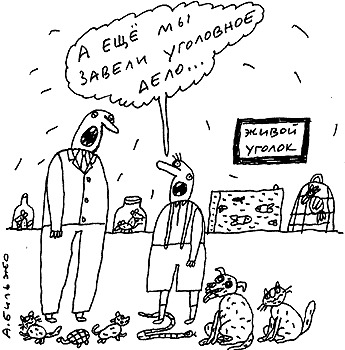 А ЕЩЁ МЫ
ЗАВЕЛИ УГОЛОВНОЕ
ДЕЛО...
ЖИВОЙ
УГОЛОК
А.БИЛЬЖО